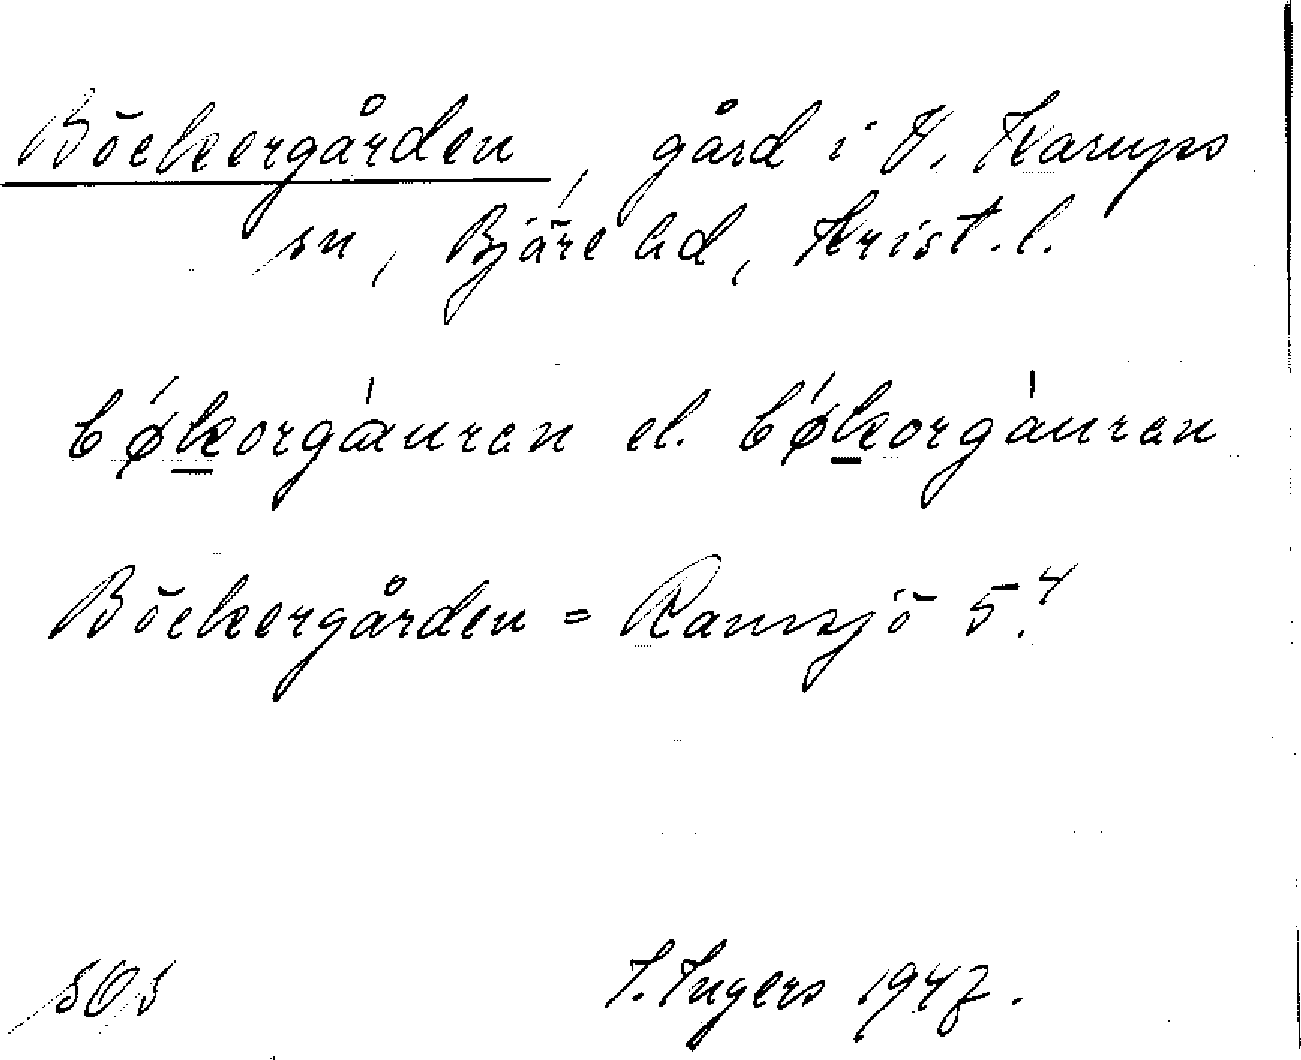 Böckergården, gård i V. Karups
sn, Bjäre hd, Krist. l.
bǿkorgàuran el. bǿkorgàuran
Böckergården = Ramsjö 5.⁴
SOS I. Ingers 1947.